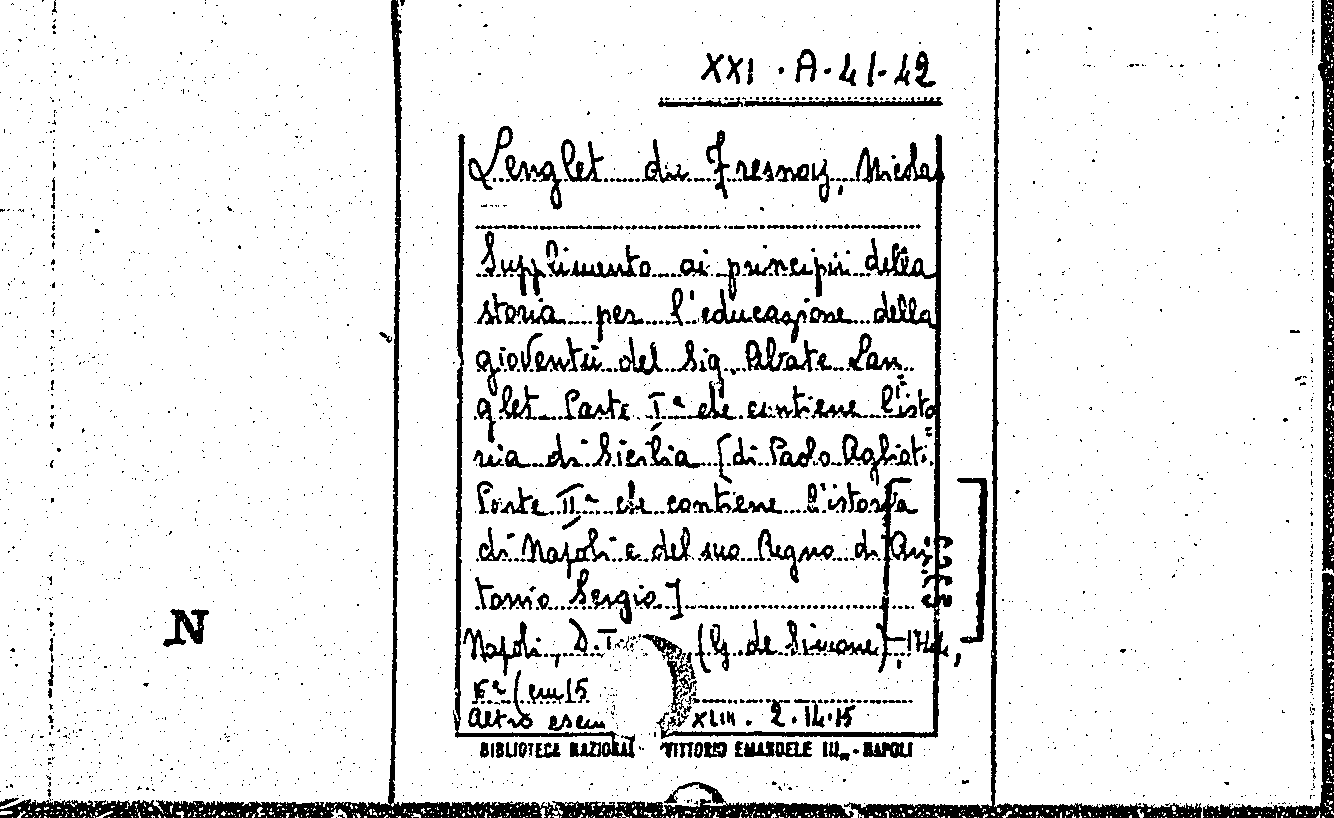 XXI · A · 41-42
Lenglet du Fresnoy, Nicolas
Supplimento ai principii della
storia per l'educazione della
gioventù del Sig. Abate Lan=
glet Parte Iª che contiene l'isto=
ria di Sicilia [di Paolo Agliati.
Parte IIª che contiene l'istoria
di Napoli e del suo Regno di An=
tonio Sergio]
Napoli, D. (G. de Simone),
(cm 15
Altro esem XLIII. 2.14.15
BIBLIOTECA NAZIONAL VITTORIO EMANUELE III - NAPOLI
N